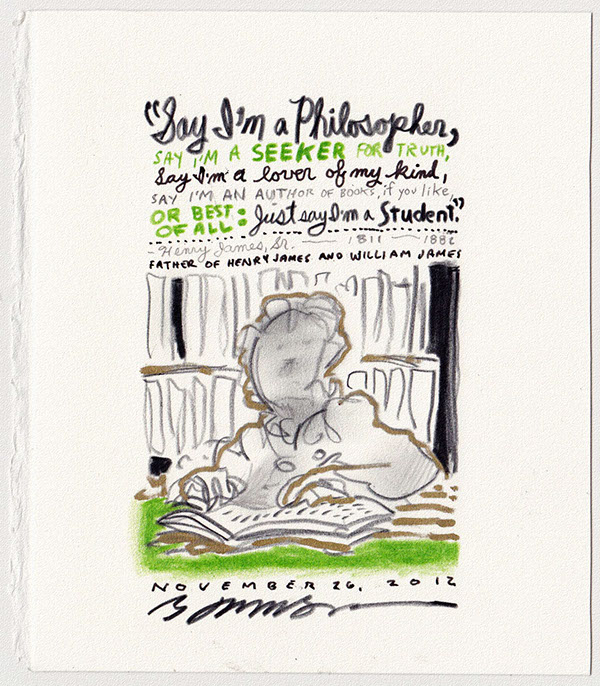 "Say I'm a Philosopher,
SAY I'M A SEEKER FOR TRUTH,
Say I'm a lover of my kind,
SAY I'M AN AUTHOR OF BOOKS, if you like,
OR BEST
OF ALL: Just say I'm a Student."
- Henry James, Sr. 1811 1882
FATHER OF HENRY JAMES AND WILLIAM JAMES
NOVEMBER 26, 2012